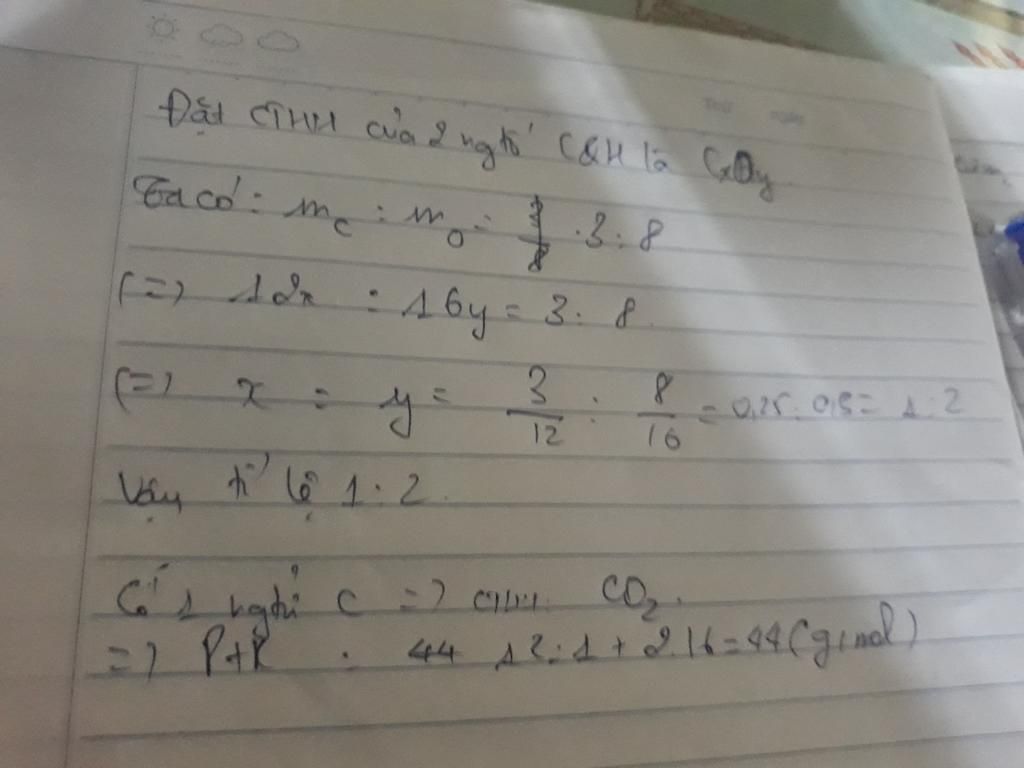 Đặt CTHH của 2 ngtố C&H là CxOy
Ta có: mC : mO = 3 : 8
(=) 12x : 16y = 3 : 8.
(=) x : y = 3/12 : 8/16 = 0,25 : 0,5 = 1 : 2
Vậy tỉ lệ 1 : 2.
Có 1 ngtử C => CTHH: CO2.
=> PtK : 44 12.1 + 2.16 = 44 (g/mol)